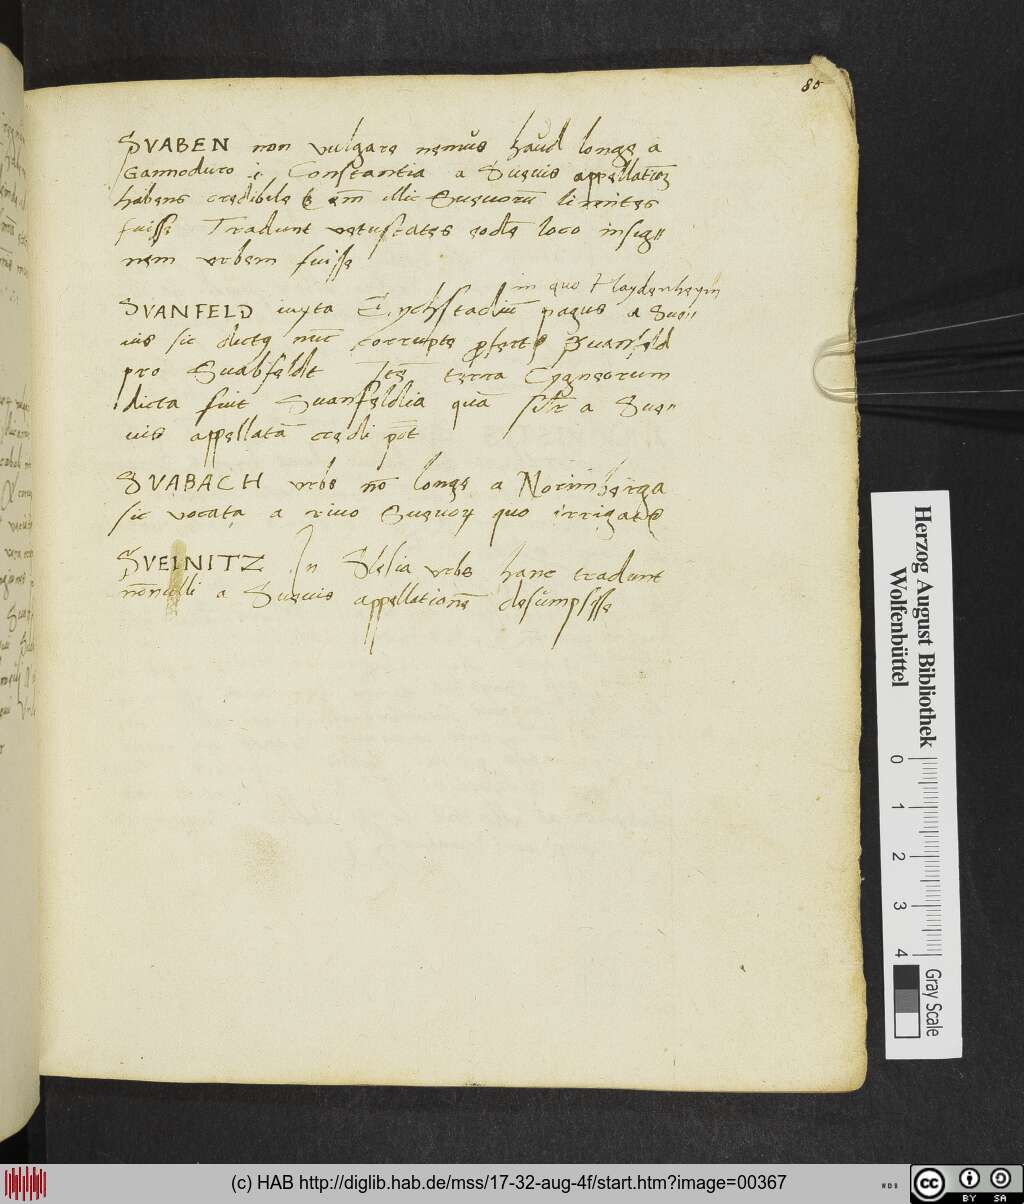 80
SVABEN non vulgare nemus haud longe a
Gannoduro .i. Constantia a Sueuis appellatiōē
habens credibile ē em̄ illic Sueuorū limites
fuisse Tradunt vetustates eodē loco insig//
nem urbem fuisse
in quo Haydenheym
SVANFELD iuxta Eychstadiū pagus a Sue//
uis sic dictꝰ nūc corrupte ꝓfertꝰ Suanfeld
pro Suabfeldt Itē terra Cygneorum
dicta fuit Suanfeldia quā sil̄r a Sue//
uis appellatā credi pōt
SVABACH urbs nō longe a Norimberga
sic vocata a riuo Sueuoꝝ quo irrigatꝰ
SVEINITZ In Slesia urbs hanc tradunt
nōnulli a Sueuis appellationē desumpsisse
Herzog August Bibliothek
Wolfenbüttel
0 1 2 3 4
Gray Scale
(c) HAB http://diglib.hab.de/mss/17-32-aug-4f/start.htm?image=00367
WDB
cc BY SA